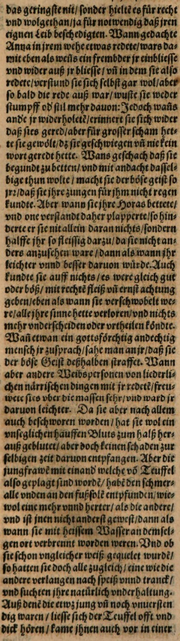 das geringste nit / sonder hielte es für recht
vnd wolgethan / ja für notwendig daß jren
eignen Leib beschedigten. Wann gedachte
Anna in jrem wehe etwas redete / wars da-
mit eben als wens ein frembder jr einbliesse
vnd wider auß jr bliesse / vñ in dem sie also
redete / verstund sie sich selbst gar wol / aber
so bald die rede auß war / wust sie weder
stumpff od stil mehr dauon: Jedoch wañs
andere jr widerholetē / erinnert sie sich wider
daß sies gered / aber für grosser scham het-
te sie gewölt / dz sie geschwiegen vñ kein ein
wort geredt hette. Wans geschach daß sie
begundē zu betten / vnd mit andacht dassel-
bige thun wolte / macht sie der böse geist so
jrr / daß sie ihre zungen für jhm nicht regen
kundte. Aber wann sie jhre Horas bettete /
vnd one verstandt daher plapperte / so hin-
derte er sie nit allein daran nichts / sondern
halffe jhr so fleissig darzu / da sie nicht an-
ders anzusehen ware / dann als wann jhr
leichter vnnd besser daruon würde. Auch
kundte sie auff nichts / es were gleich gut
oder böß / mit recht fleiß vñ ernst achtung
geben / eben als wann sie verschwobelt we-
re / alle jhre sinne hette verloren / vnd nichts
mehr vnderscheiden oder vrtheilen köndte.
Wañ etwan ein gottsförchtig andechtig
mensch jr zusprach / sahe man an jr / daß sie
der böse Geist deßhalben straffet. Wann
aber andere Weibspersonen von liederli-
chen närrischen dingen mit jr redetē / frew
wete sies vber die massen sehr / vnd ward jr
daruon leichter. Da sie aber nach allem
auch beschworen worden / hat sie wol ein
vnseglichen hauffen Bluts zum halß her-
auß geblutet / aber doch keinen schaden zur
selbigen zeit daruon entpfangen. Aber die
jungfrawē mit einand welche võ Teuffel
also geplagt sind wordē / habē den schmer-
alle vnden an den fußsolē entpfunden / wie-
wol eine mehr vnnd herter / als die andere /
vnd ist jnen nicht anderst gewest / dann als
wann sie mit heissem Wasser an demsel-
gen ort verbrennt worden weren. Vnd ob
sie schon vngleicher weiß gequelet wurdē /
so hatten sie doch alle zugleich / eine wie die
andere verlangen nach speiß vnnd tranck /
vnd suchten jhre natürlich vnderhaltung.
Auß denē die etwz jung vñ noch vnuersten-
dig waren / liesse sich der Teuffel offt vnd
dick hören / kame jhnen auch vor in einer